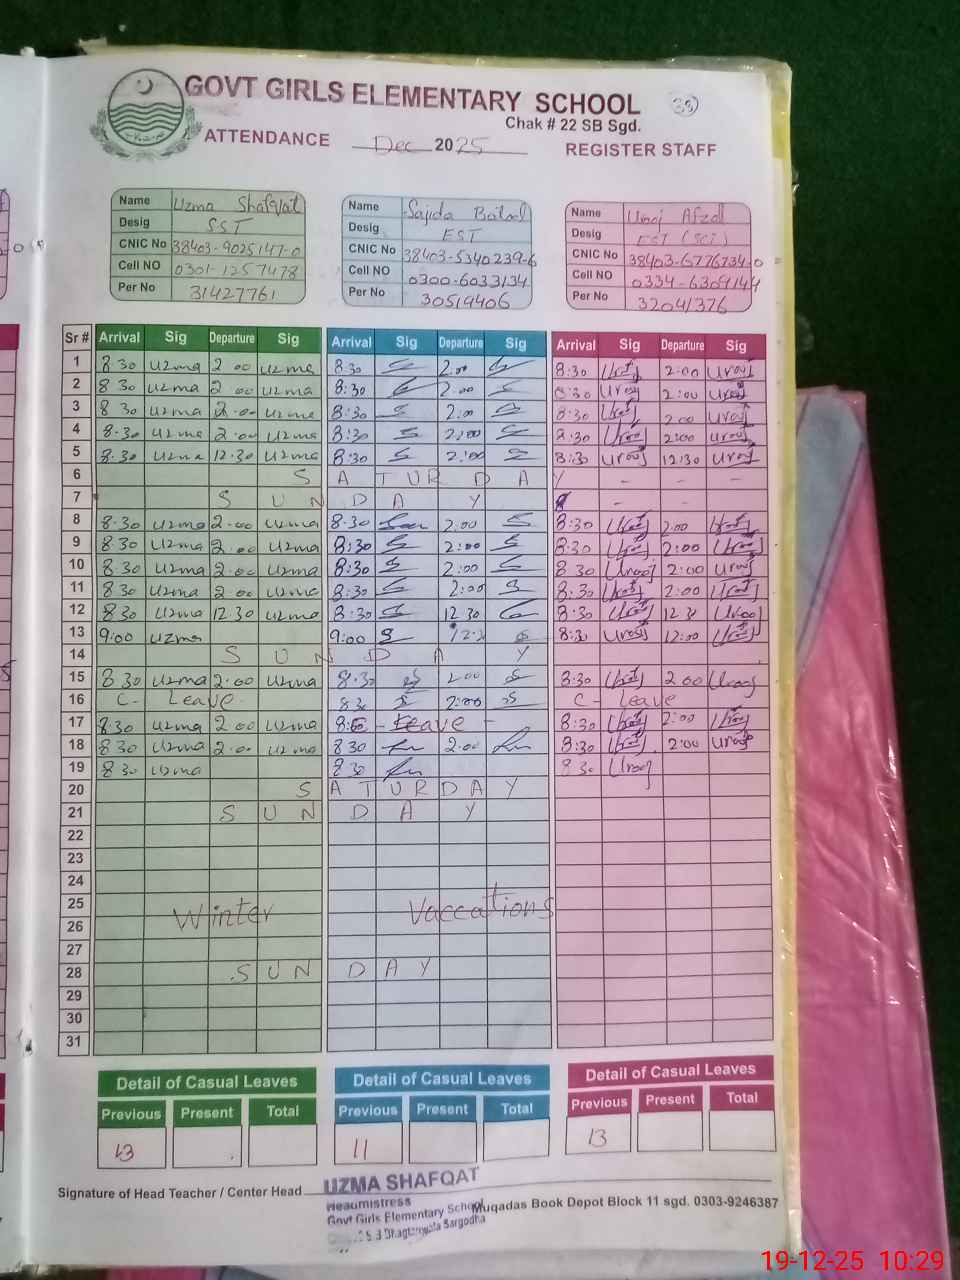 GOVT GIRLS ELEMENTARY SCHOOL 38
Chak # 22 SB Sgd.
ATTENDANCE Dec 2025 REGISTER STAFF
Name Uzma Shafqat
Desig SST
CNIC No 38403-9025147-0
Cell NO 0301-1257478
Per No 31427761
Name Sajida Batool
Desig EST
CNIC No 38403-5340239-6
Cell NO 0300-6033134
Per No 30519406
Name Urooj Afzal
Desig EST (SCI)
CNIC No 38403-6776734-0
Cell NO 0334-6309144
Per No 32041376
Sr # Arrival Sig Departure Sig Arrival Sig Departure Sig Arrival Sig Departure Sig
1 8 30 uzma 2 00 uzma 8:30 2:00 8:30 Urooj 2:00 Urooj
2 8 30 uzma 2 00 uzma 8:30 2:00 8:30 Urooj 2:00 Urooj
3 8 30 uzma 2.00 uzma 8:30 2:00 8:30 Urooj 2:00 Urooj
4 8.30 uzma 2.00 uzma 8:30 2:00 8:30 Urooj 2:00 Urooj
5 8.30 uzma 12.30 uzma 8:30 2:00 8:30 Urooj 12:30 Urooj
6 S A T U R D A Y - - -
7 S U N D A Y - -
8 8.30 uzma 2.00 uzma 8.30 2:00 8:30 Urooj 2:00 Urooj
9 8.30 uzma 2.00 uzma 8:30 2:00 8:30 Urooj 2:00 Urooj
10 8.30 uzma 2.00 uzma 8:30 2:00 8:30 Urooj 2:00 Urooj
11 8.30 uzma 2 00 uzma 8:30 2:00 8:30 Urooj 2:00 Urooj
12 8.30 uzma 12.30 uzma 8:30 12 30 8:30 Urooj 12:30 Urooj
13 9:00 uzma 9:00 8:30 Urooj 12:00 Urooj
14 S U N D A Y
15 8 30 uzma 2.00 uzma 8.30 2:00 8:30 Urooj 2 00 Urooj
16 C- Leave 8:30 2:00 C- Leave
17 8:30 uzma 2 00 uzma C - Leave - 8:30 Urooj 2:00 Urooj
18 8 30 uzma 2.00 uzma 8 30 2:00 8:30 Urooj 2:00 Urooj
19 8 30 uzma 8 30 8 30 Urooj
20 S A T U R D A Y
21 S U N D A Y
22
23
24
25
Winter Vaccations
26
27
28 S U N D A Y
29
30
31
Detail of Casual Leaves
Previous Present Total
13
Detail of Casual Leaves
Previous Present Total
11
Detail of Casual Leaves
Previous Present Total
13
Signature of Head Teacher / Center Head
UZMA SHAFQAT
Headmistress
Govt Girls Elementary School
S.B Bhagtanwala Sargodha
Muqadas Book Depot Block 11 sgd. 0303-9246387
19-12-25 10:29